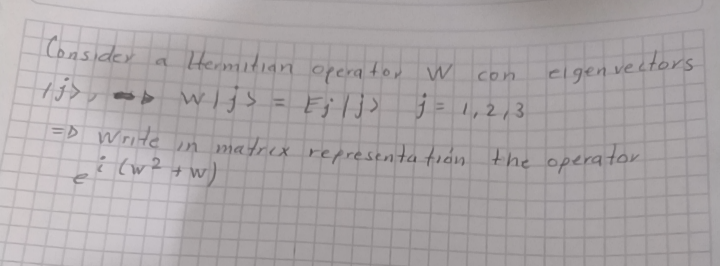 Consider a Hermitian operator W con eigenvectors
|j>, => W|j> = Ej|j> j = 1,2,3
=> Write in matrix representatión the operator
e^i(w²+w)